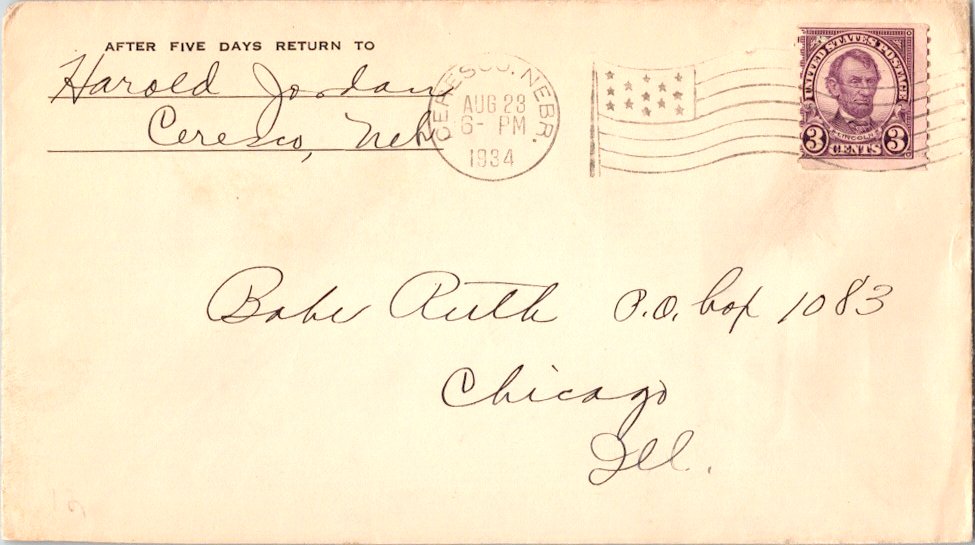 AFTER FIVE DAYS RETURN TO
Harold Jordan
Ceresco, Neb
CERESCO, NEBR.
AUG 23
6- PM
1934
UNITED STATES POSTAGE
LINCOLN
3 CENTS 3
Babe Ruth P.O. box 1083
Chicago
Ill.